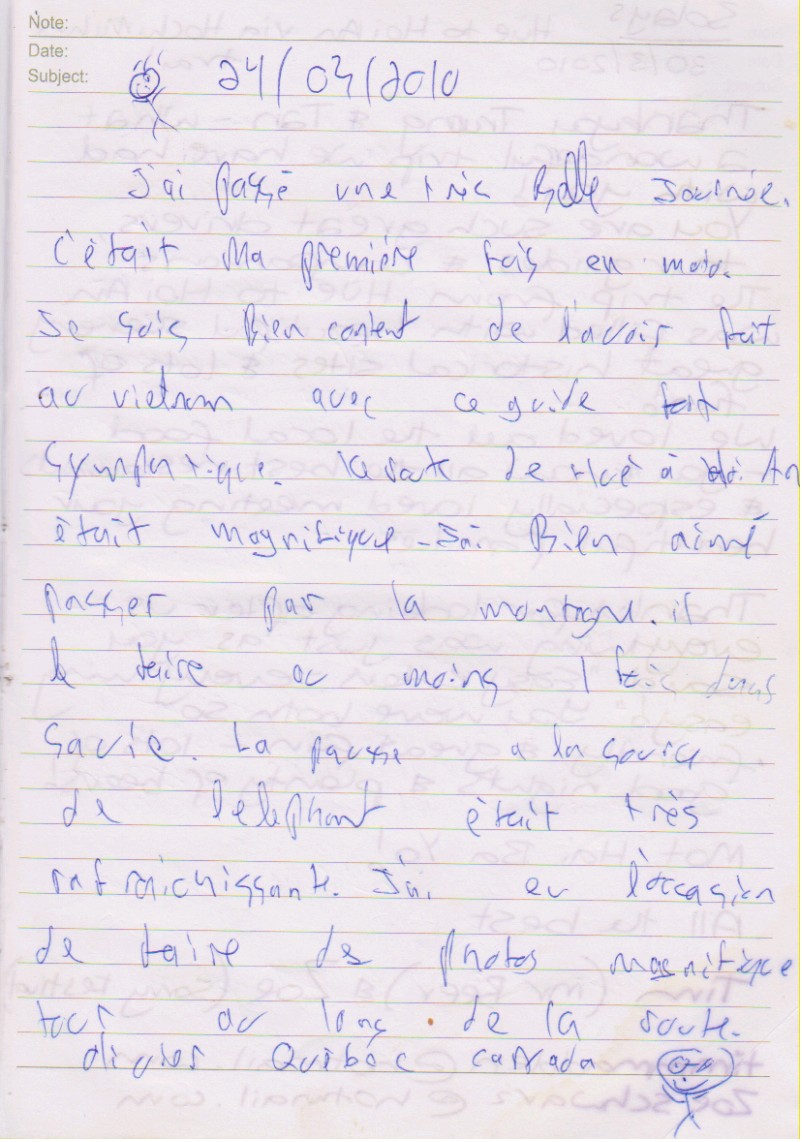 Note:
Date:
Subject:
24/03/2010
J'ai passé une très Belle Journée.
C'était Ma première fois en moto.
Je suis Bien content de l'avoir fait
au vietnam avec ce guide fort
Sympatique. la route de Hué à Hoi An
était magnifique - J'ai Bien aimé
passer par la montagne. il
le faire au moins 1 fois dans
Savie. La pausse a la source
de l'elephant était très
rafraichissante. J'ai eu l'occasion
de faire des photos magnifique
tout au long de la route.
olivier Québec cannada